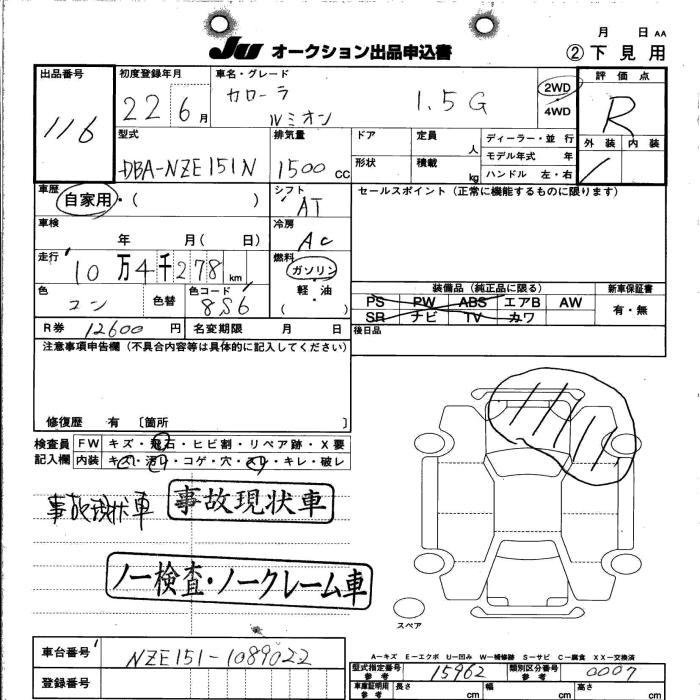 月 日 AA
JU オークション出品申込書
②下見用
出品番号 116
初度登録年月 22 6月
車名・グレード カローラ ルミオン 1.5G
2WD
4WD
評価点 R
外装 内装
型式 DBA-NZE151N
排気量 1500 CC
ドア
形状
定員 人
積載 kg
ディーラー・並行
モデル年式 年
ハンドル 左・右
車歴 自家用・( )
シフト AT
セールスポイント(正常に機能するものに限ります)
車検 年 月( 日)
冷房 AC
走行 10万4千278 km
燃料 ガソリン
軽・油
( )
色 コン 色替
色コード 8S6
装備品(純正品に限る)
新車保証書
PS PW ABS エアB AW
SR ナビ TV カワ
有・無
R券 12600円
名変期限 月 日
後日品
注意事項申告欄(不具合内容等は具体的に記入してください)
修復歴 有 〔箇所 〕
検査員
記入欄
FW キズ・飛石・ヒビ割・リペア跡・X要
内装 キズ・汚れ・コゲ・穴・スレ・キレ・破レ
事故現状車
事故現状車
ノー検査・ノークレーム車
スペア
車台番号 NZE151-1089022
登録番号
A−キズ E−エクボ U−凹み W−補修跡 S−サビ C−腐食 XX−交換済
型式指定番号
参考
15962
類別区分番号
参考
0007
車庫証明用
参考
長さ cm
幅 cm
高さ cm